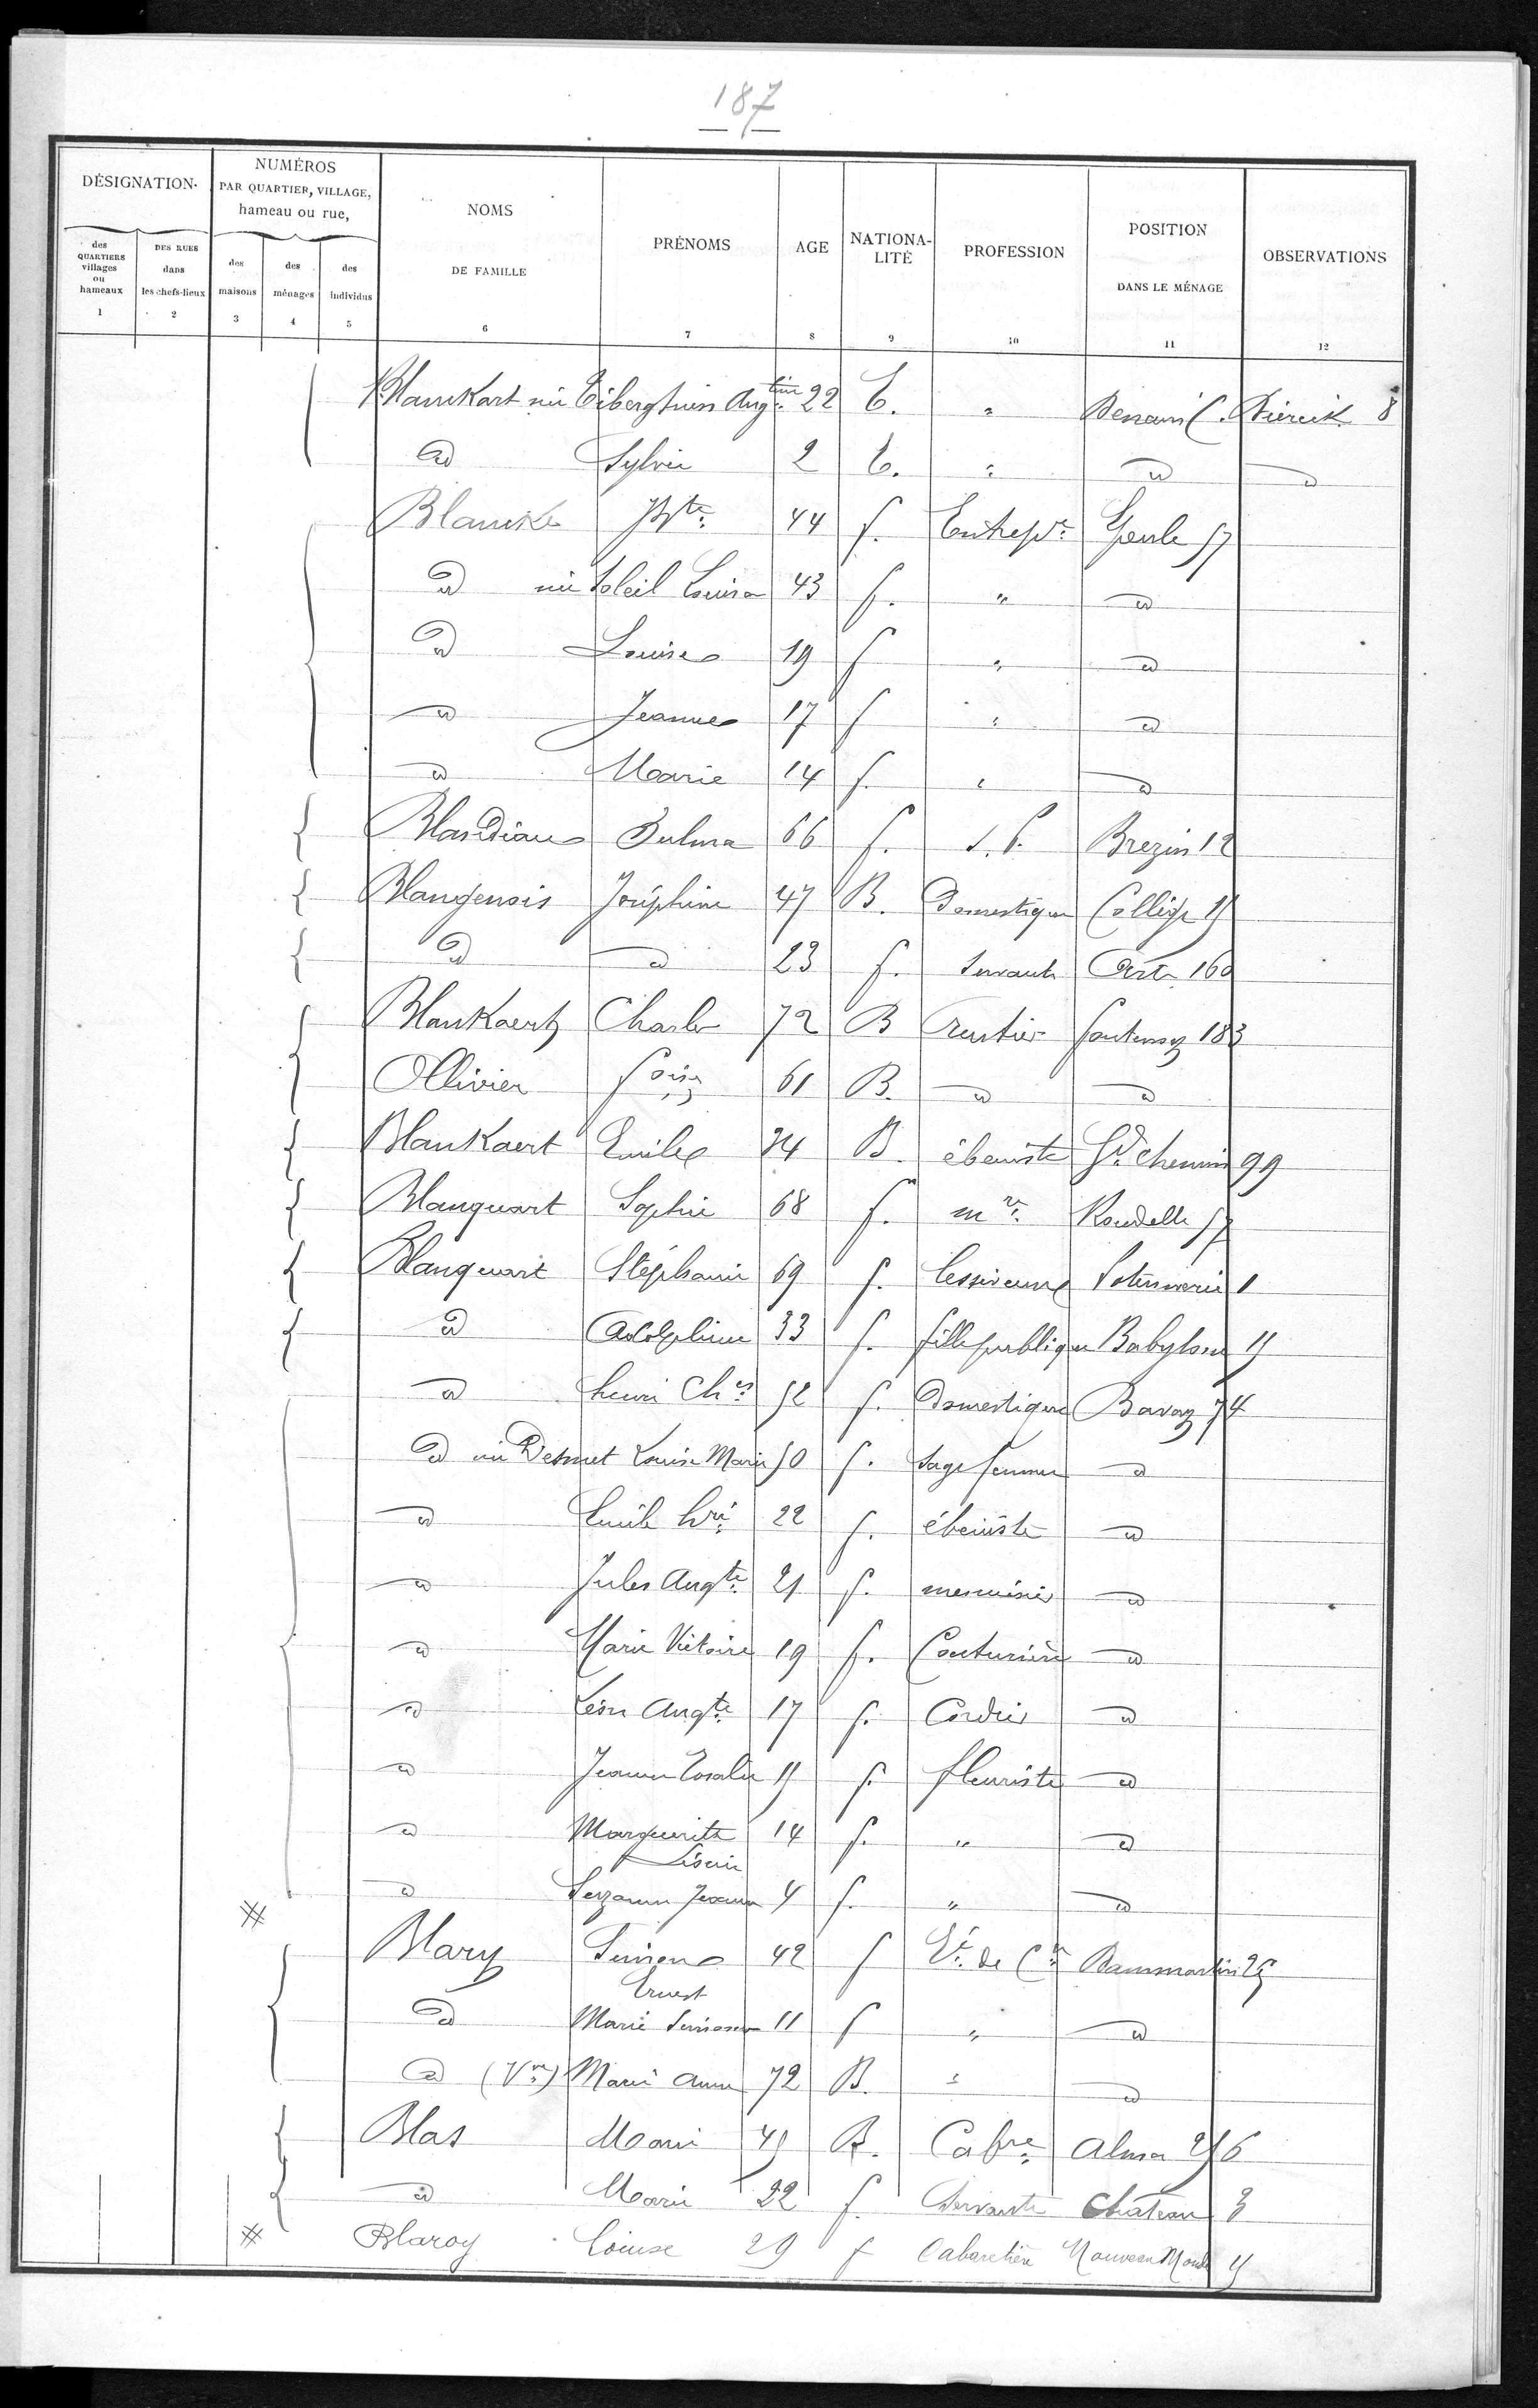 187
DÉSIGNATION
NUMÉROS PAR QUARTIER, VILLAGE, hameau ou rue,
NOMS DE FAMILLE
PRÉNOMS
AGE
NATIONA-LITÉ
PROFESSION
POSITION DANS LE MÉNAGE
OBSERVATIONS
des QUARTIERS villages ou hameaux
DES RUES dans les chefs-lieux
des maisons
des ménages
des individus
1 2 3 4 5 6 7 8 9 10 11 12
Blankart née Tiberghien Aug.tine 22 " 8
d Sylvie 2 " d d
Blancke Bte 44 f. Entrepr. 57
d née Soleil Louise 43 f. " d
d Louise 19 f " d
d Jeanne 17 f " d
d Marie 14 f. " d
Blandiau Zulma 66 f. s. p. Brezin 12
Blangenois Joséphine 47 B. Domestique Collège 15
d d 23 f. servante 160
Blankaert Charles 72 B rentier fontenoy 183
Ollivier foise 61 B. d d
Blankaert Emile 24 B ébéniste Gd. chemin 99
Blanquart Sophie 68 f. mre. Rondelle 57
Blanquart Stéphanie 69 f. lessiveuse Potennerie 1
d Adolphine 33 f. fille publique Babylone 15
d henri Ches 52 f. Domestique Bavay 74
d née Desmet Louise Marie 50 f. Sage femme d
d Emile hri 22 f. ébéniste d
d Jules Augte 21 f. menuisier d
d Marie Victoire 19 f. Couturière d
d Léon Augte 17 f. Cordier d
d Jeanne Rosalie 15 f. fleuriste d
d Marguerite 14 f. " d
d Suzanne Jeanne 4 f. " d
Blary Simon Ernest 42 f Et. de Ce Dammartin 25
d Marie Simone 11 f " d
d (Vve) Marie Anne 72 B. " d
Blas Marie 45 B. Cabre Alma 256
d Marie 22 f. Servante Château 3
Blaroy Louise 29 f Cabaretière Nouveau Monde 15